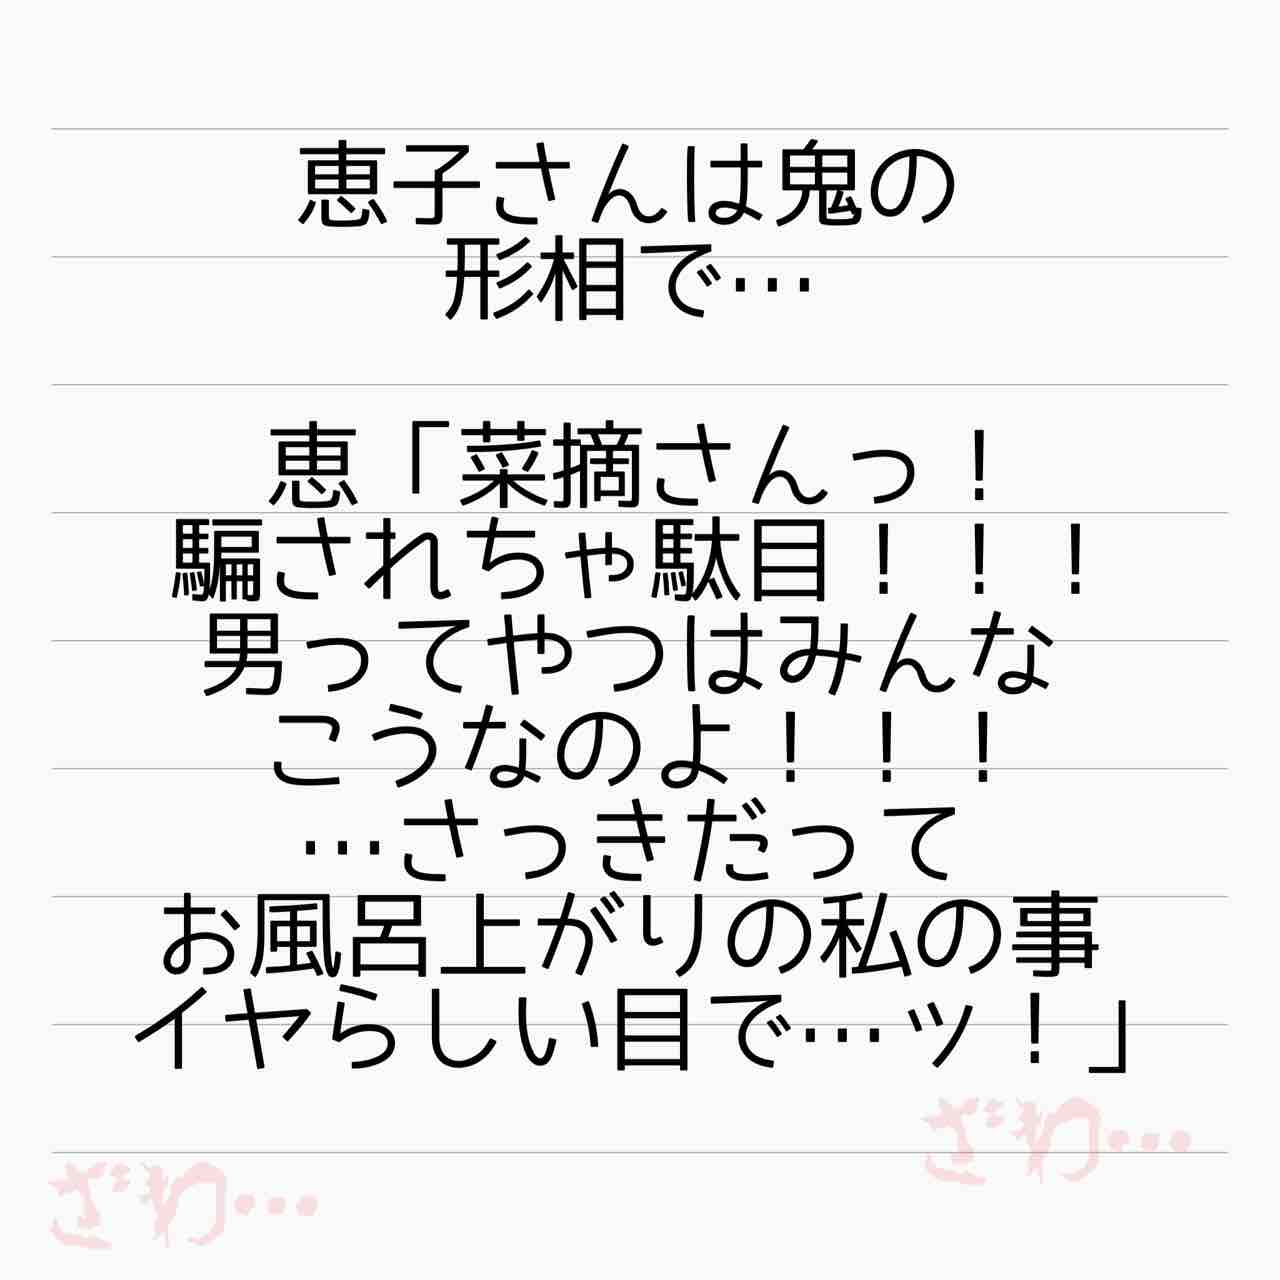 恵子さんは鬼の
形相で…
恵「菜摘さんっ！
騙されちゃ駄目！！！
男ってやつはみんな
こうなのよ！！！
…さっきだって
お風呂上がりの私の事
イヤらしい目で…ッ！」
ざわ…
ざわ…